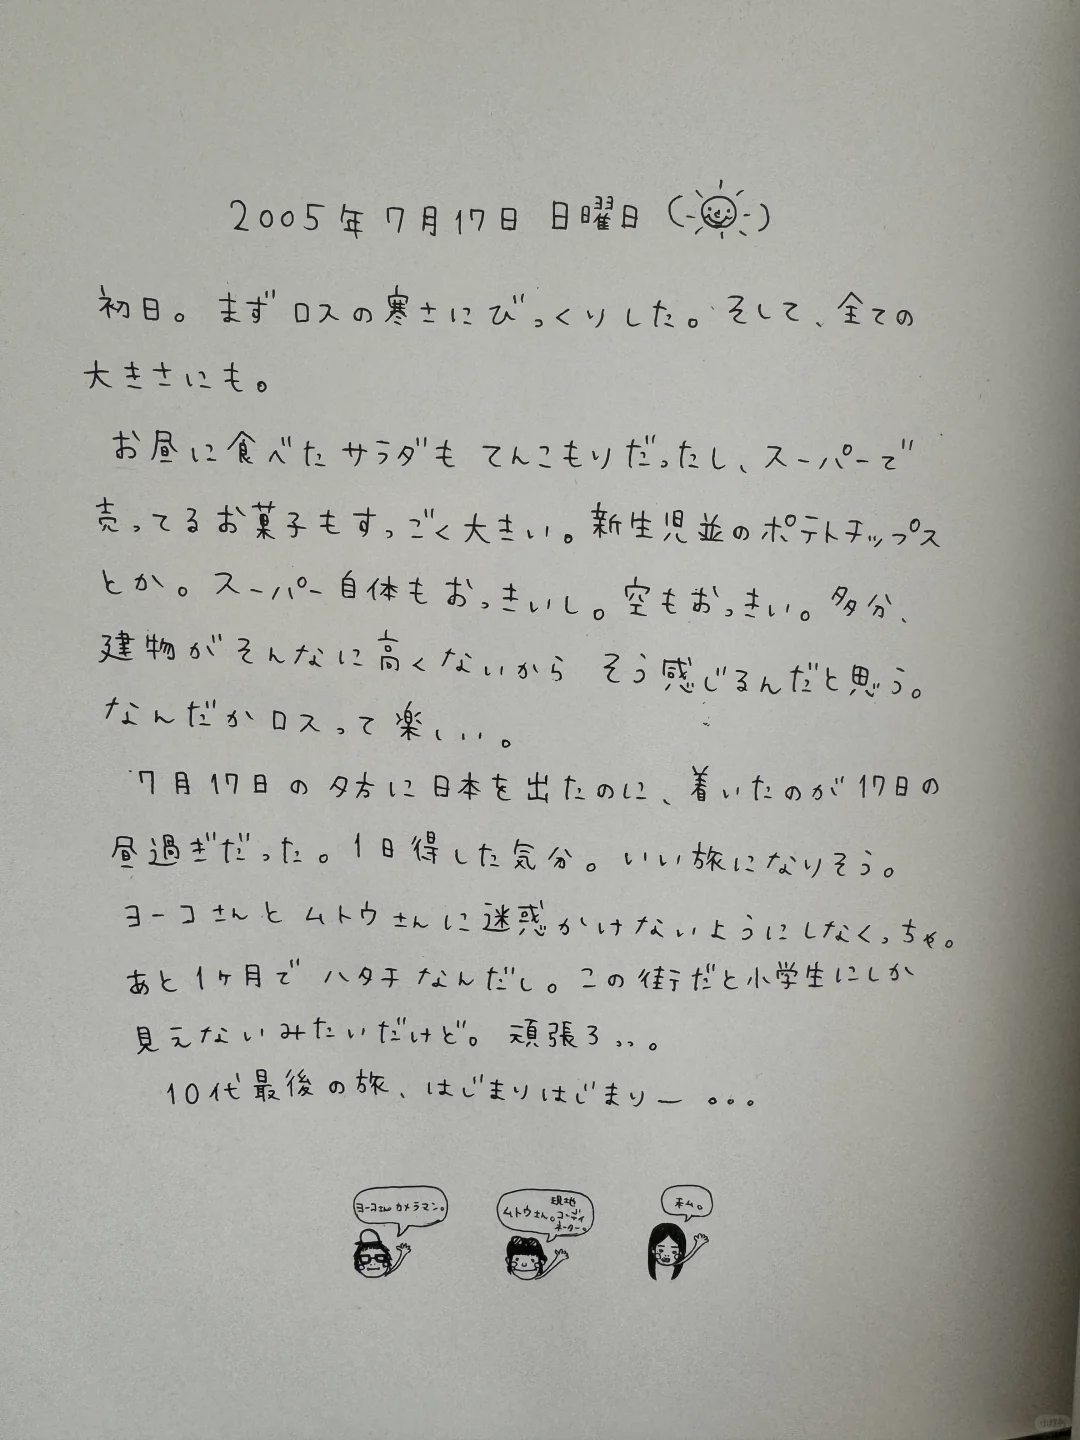 2005年 7月17日 日曜日 ( )
初日。まずロスの寒さにびっくりした。そして、全ての
大きさにも。
お昼に食べたサラダも てんこもりだったし、スーパーで
売ってるお菓子もすっごく大きい。新生児並のポテトチップス
とか。スーパー自体もおっきいし。空もおっきい。多分、
建物がそんなに高くないから そう感じるんだと思う。
なんだかロスって楽しい。
7月17日の夕方に日本を出たのに、着いたのが17日の
昼過ぎだった。1日得した気分。いい旅になりそう。
ヨーコさんと ムトウさんに迷惑かけないようにしなくっちゃ。
あと1ヶ月で ハタチなんだし。この街だと小学生にしか
見えないみたいだけど。頑張ろっ。
10代最後の旅、はじまりはじまりー ...
ヨーコさん カメラマン。
ムトウさん。現地コーディネーター。
私。